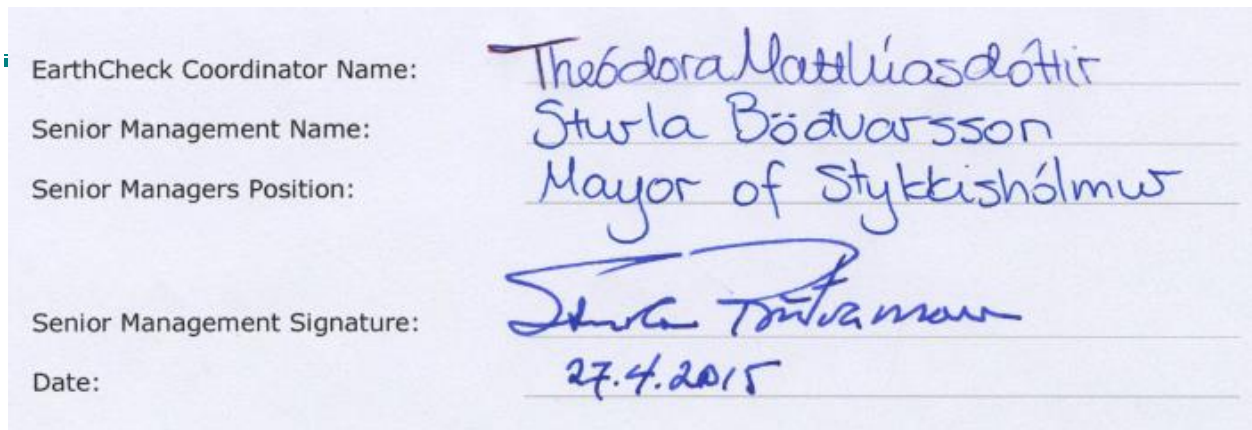 EarthCheck Coordinator Name: Theódora Matthíasdóttir
Senior Management Name: Sturla Bödvarsson
Senior Managers Position: Mayor of Stykkishólmur
Senior Management Signature:
Date: 27.4.2015